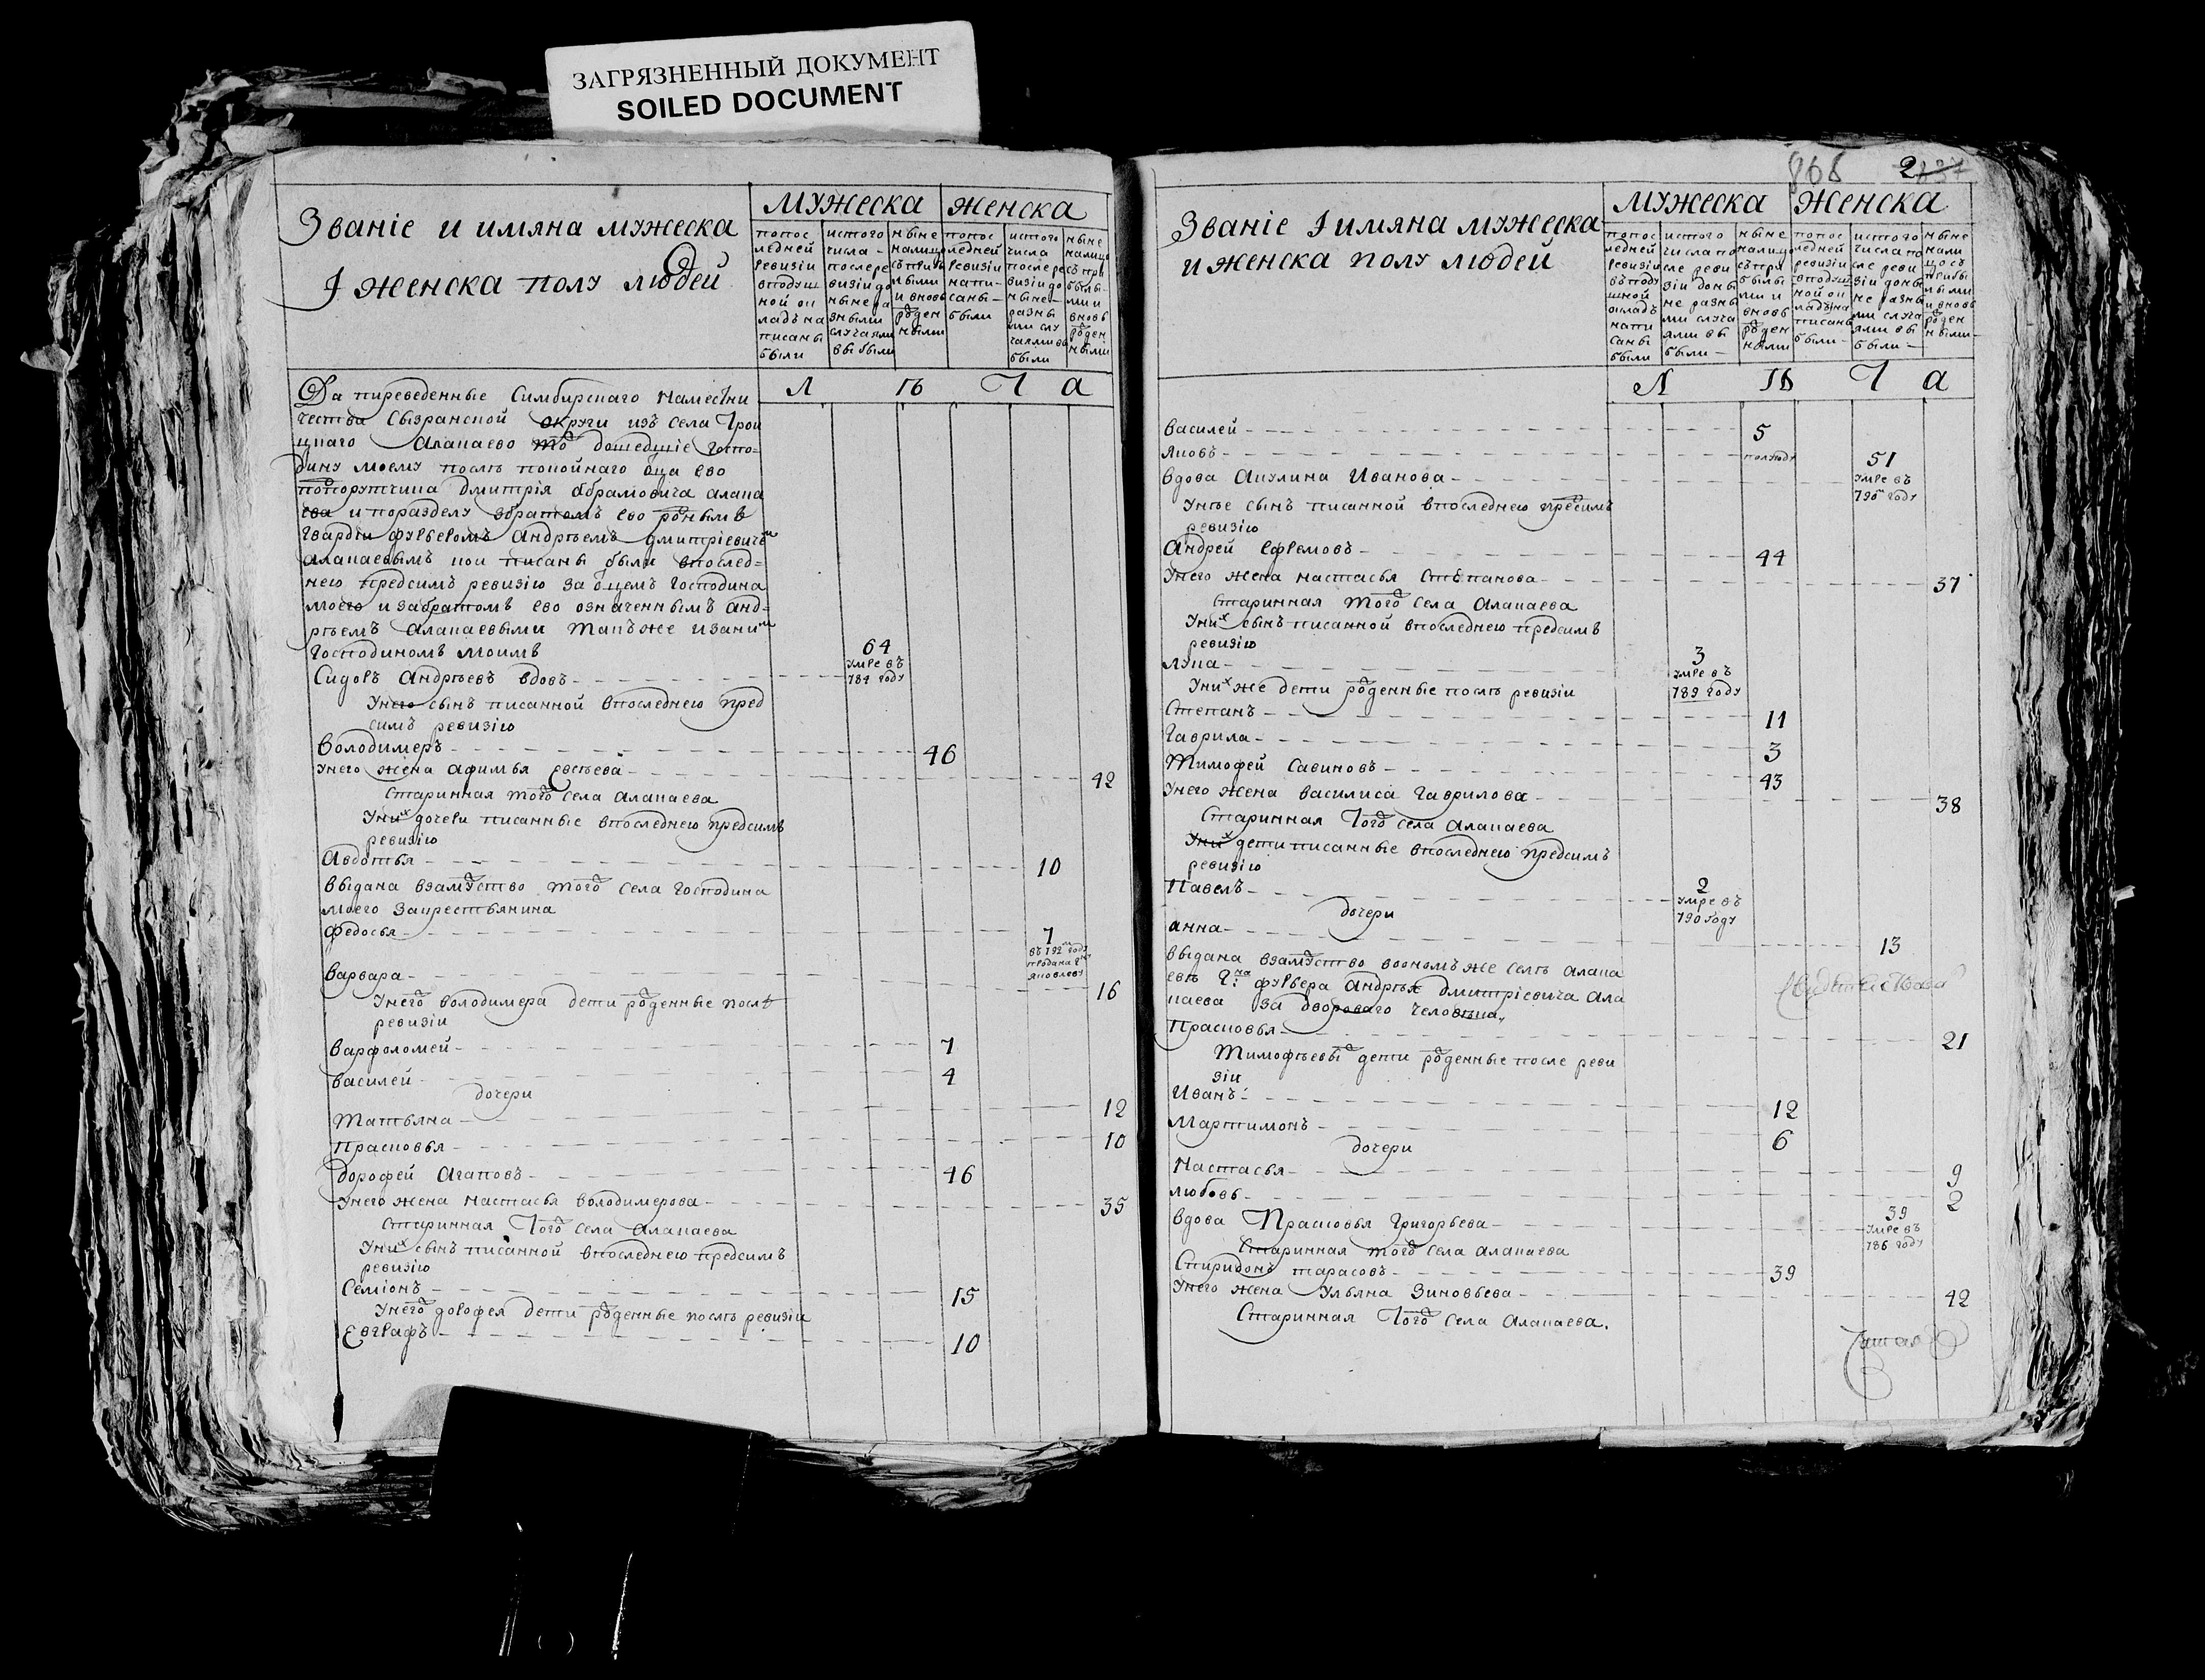 ЗАГРЯЗНЕННЫЙ ДОКУМЕНТ
SOILED DOCUMENT
Званіе и имяна мужеска
I женска полу людей
мужеска женска
попос
ледней
ревизіи
вподуш
ной ок
ладъ на
писаны
были
истого
числа
послере
визіи до
ныне ра
зными
случаями
выбыли
ныне
налицо
съприб
ылыми
и вновь
рожден
ными
попос
ледней
ревизіи
напи-
саны-
были
истого
числа
послере
визіи до
ныне
разны
ми слу
чаями вы
были
ныне
налицо
съ при
былы-
ми и
вновь
рожден
ными
Л ѣ т а
Да переведенные Симбирскаго Намесни
чества Сызранской округи изъ села Трои
цкаго Алакаево тожъ дошедшіе Госпо-
дину моему послѣ покойнаго оца ево
попорутчика дмитрія абрамовича алака
ева и поразделу збратомъ ево роднымъ
Гвардіи фурьеромъ андрѣемъ дмитріевичемъ
алакаевымъ кои писаны были впослед-
нею предсимъ ревизію за оцемъ Господина
моего и забратомъ ево означеннымъ анд-
рѣемъ Алакаевыми такъже изаним
Господиномъ моимъ
Сидоръ Андрѣевъ вдовъ 64
умре въ
784 году
Унего сынъ писанной впоследнею пред
симъ ревизію
Володимеръ 46
унего жена афимья Евсѣева 42
Старинная того села алакаева
Уних дочери писанные впоследнею предсимъ
ревизію
Авдотья 10
выдана взамужство того села господина
моего закрестьянина
Федосья 7
въ 792м году
продана гну
яковлеву
Варвара 16
Унего володимера дети рожденные послѣ
ревизіи
Варфоломей 7
Василей 4
дочери
Татьяна 12
Прасковья 10
Дорофей Агаповъ 46
Унего жена настасья володимерова 35
Старинная Того села Алакаева
Уних сынъ писанной впоследнею предсимъ
ревизію
Семіонъ 15
Унего дорофея дети рожденные послѣ ревизіи
Евграфъ 10
868 2
Званіе I имяна мужеска
и женска полу людей
мужеска женска
попос
ледней
ревизіи
въподу
шной
окладъ
напи
саны
были
истого
числа по
сле реви
зіи доны
не разны
ми случа
ями вы
были
ныне
налицо
съ при
былы
ми и
вновь
рожден
ными
попос
ледней
ревизіи
вподуш
ной ок
ладъ на
писаны
были
истого
числа по
сле реви
зіи доны
не разны
ми случа
ями вы
были
ныне
нали
цо съ
прибы
лыми
и вновь
рожден
ными
Л ѣ т а
Василей 5
Яковъ полугоду
вдова Акулина Иванова 51
умре въ
790м году
Унѣе сынъ писанной впоследнею предсимъ
ревизію
Андрей Ефремовъ 44
Унего жена настасья Степанова 37
Старинная того села Алакаева
Уних сынъ писанной впоследнею предсимъ
ревизію
Лука 3
умре въ
789 году
Уних же дети рожденные послѣ ревизіи
Степанъ 11
Гаврила 3
Тимофей Савиновъ 43
Унего жена василиса Гаврилова 38
Старинная Того села алакаева
Уних дети писанные впоследнею предсимъ
ревизію
Павелъ 2
умре въ
790 году
дочери
анна 13
выдана взамужство воономъже селѣ алака
евѣ Гна фурьера андрѣя дмитріевича Ала
каева за двороваго человѣка,
Прасковья 21
Тимофѣевы дети рожденные после реви
зіи
Иванъ 12
Мартимонъ 6
дочери
Настасья 9
любовь 2
вдова Прасковья григорьева 39
умре въ
786 году
Старинная того села алакаева
Спиридонъ тарасовъ 39
Унего жена Ульяна Зиновьева 42
Старинная Того села Алакаева.